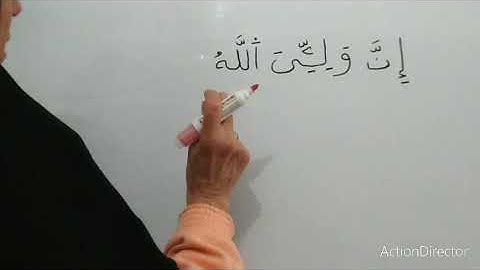 إِنَّ وَلِـِّۧىَ ٱللَّهُ
ActionDirector